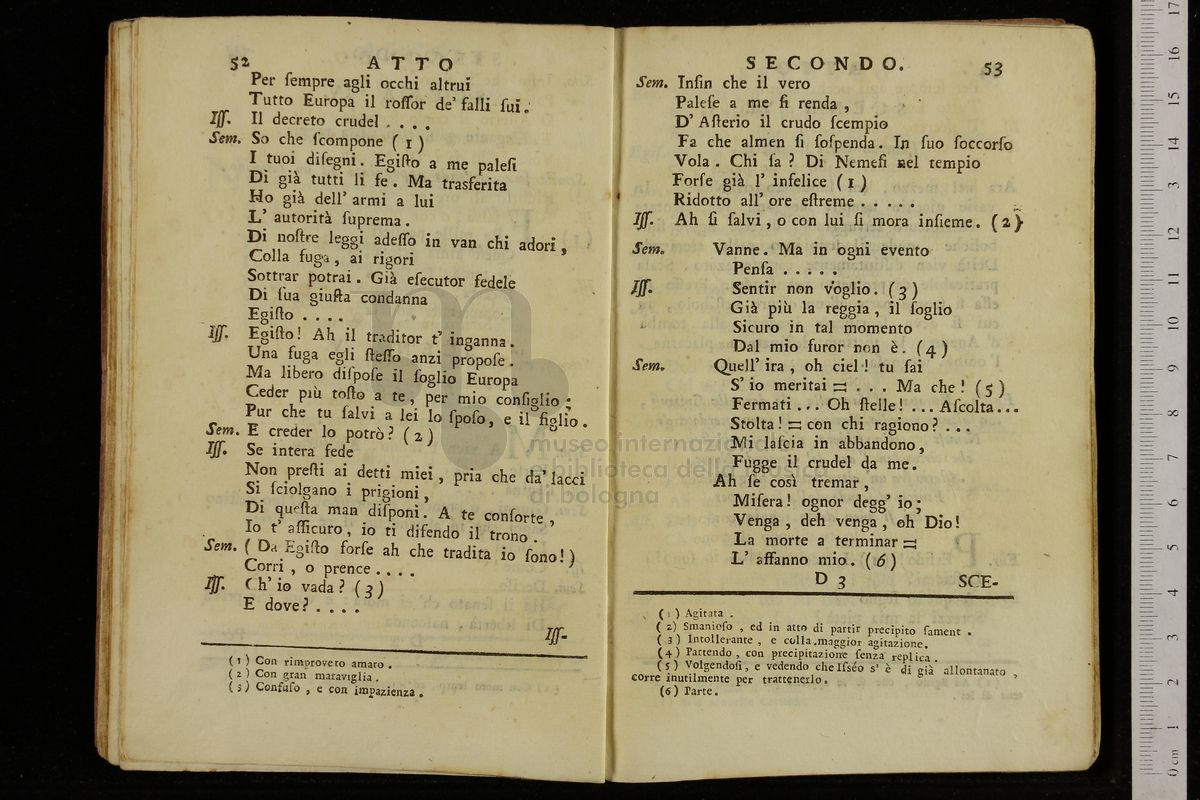 52 ATTO
Per ſempre agli occhi altrui
Tutto Europa il roſſor de' falli ſui.
Iſſ. Il decreto crudel . . . .
Sem. So che ſcompone (1)
I tuoi diſegni. Egiſto a me paleſi
Di già tutti li fe. Ma trasferita
Ho già dell' armi a lui
L' autorità ſuprema.
Di noſtre leggi adeſſo in van chi adori,
Colla fuga, ai rigori
Sottrar potrai. Già eſecutor fedele
Di ſua giuſta condanna
Egiſto . . . .
Iſſ. Egiſto! Ah il traditor t' inganna.
Una fuga egli ſteſſo anzi propoſe.
Ma libero diſpoſe il ſoglio Europa
Ceder più toſto a te, per mio conſiglio;
Pur che tu ſalvi a lei lo ſpoſo, e il figlio.
Sem. E creder lo potrò? (2)
Iſſ. Se intera fede
Non preſti ai detti miei, pria che da' lacci
Si ſciolgano i prigioni,
Di queſta man diſponi. A te conſorte,
Io t' aſſicuro, io ti difendo il trono.
Sem. (Da Egiſto forſe ah che tradita io ſono!)
Corri, o prence . . . .
Iſſ. Ch' io vada? (3)
E dove? . . . .
Iſſ-
(1) Con rimprovero amaro.
(2) Con gran maraviglia.
(3) Confuſo, e con impazienza.
SECONDO. 53
Sem. Inſin che il vero
Paleſe a me ſi renda,
D' Aſterio il crudo ſcempio
Fa che almen ſi ſoſpenda. In ſuo ſoccorſo
Vola. Chi ſa? Di Nemeſi nel tempio
Forſe già l' infelice (1)
Ridotto all' ore eſtreme . . . . .
Iſſ. Ah ſi ſalvi, o con lui ſi mora inſieme. (2)
Sem. Vanne. Ma in ogni evento
Penſa . . . . .
Iſſ. Sentir non voglio. (3)
Già più la reggia, il ſoglio
Sicuro in tal momento
Dal mio furor non è. (4)
Sem. Quell' ira, oh ciel! tu ſai
S' io meritai = . . . Ma che! (5)
Fermati ... Oh ſtelle! ... Aſcolta...
Stolta! = con chi ragiono? ...
Mi laſcia in abbandono,
Fugge il crudel da me.
Ah ſe così tremar,
Miſera! ognor degg' io;
Venga, deh venga, oh Dio!
La morte a terminar =
L' affanno mio. (6)
D 3 SCE-
(1) Agitata.
(2) Smanioſo, ed in atto di partir precipito ſament.
(3) Intollerante, e colla maggior agitazione.
(4) Partendo, con precipitazione ſenza replica.
(5) Volgendoſi, e vedendo che Iſséo s' è di già allontanato,
corre inutilmente per trattenerlo.
(6) Parte.
museo internazionale
e biblioteca della musica
di bologna
0 cm 1 2 3 4 5 6 7 8 9 10 11 12 13 14 15 16 17